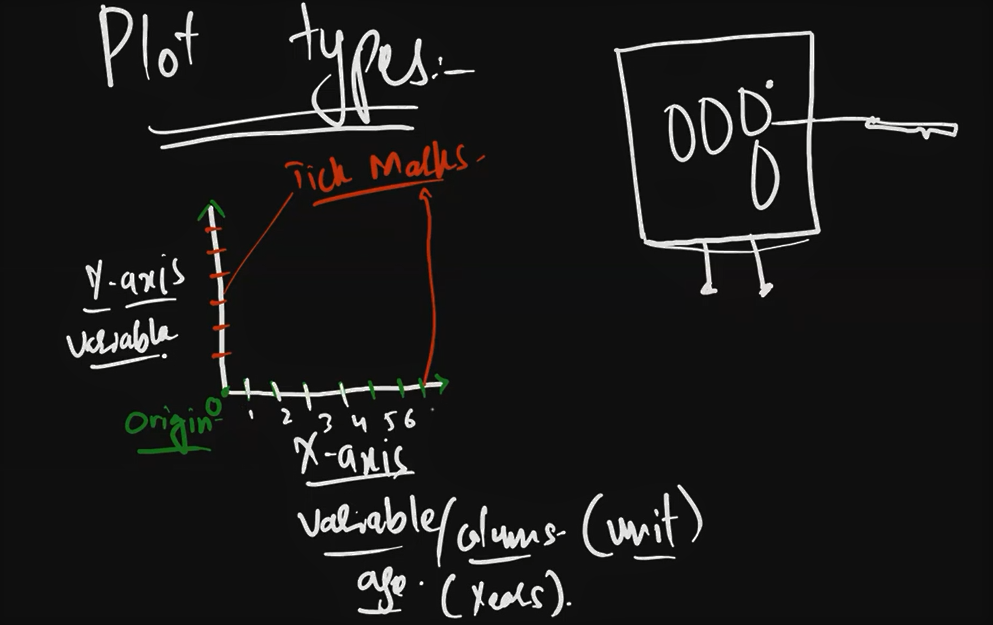 Plot types:-
Tick Marks-
Y-axis
variable.
Origin- 0
1 2 3 4 5 6
X-axis
variable/Colums- (unit)
age. (Years).
000
0